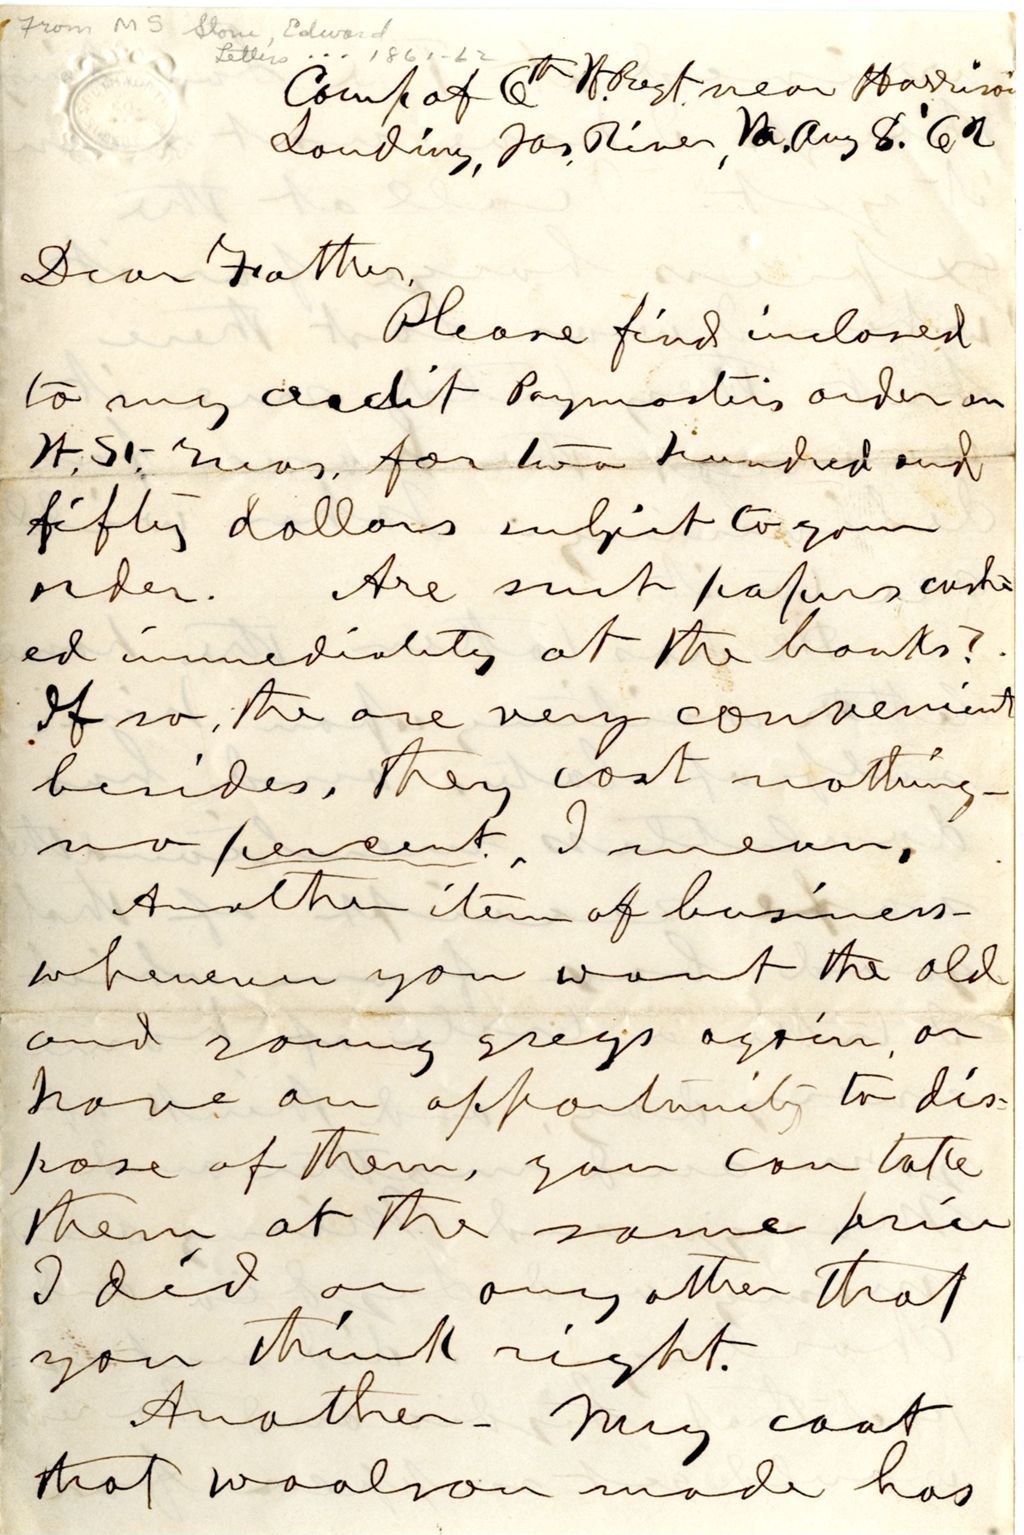 From MS Stone, Edward
Letters ... 1861-62
Camp of 6th Vt. Regt. near Harrison
Landing, Jas. River, Va. Aug 8. '62
Dear Father,
Please find inclosed
to my credit Paymaster's order on
N. St. Treas. for two hundred and
fifty dollars subject to your
order. Are such papers cash-
ed immediately at the banks?
If so, the are very convenient
besides, they cost nothing—
no percent., I mean,
Another item of business—
whenever you want the old
and young greys again, or
have an opportunity to dis-
pose of them, you can take
them at the same price
I did or any other that
you think right.
Another— My coat
that Woolson made has